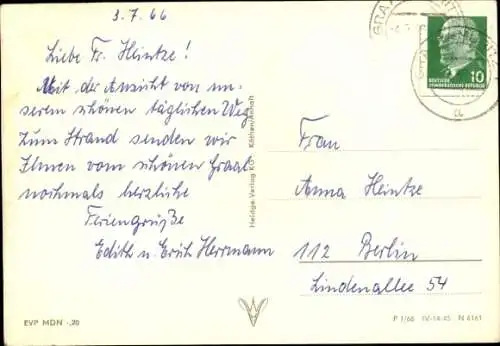 3.7.66
Liebe Fr. Heintze!
Mit der Ansicht von un-
serem schönen täglichen Weg
zum Strand senden wir
Ihnen vom schönen Graal
nochmals herzliche
Feriengrüße
Edith u. Erich Herrmann
EVP MDN -,20
Heldge-Verlag KG Köthen/Anhalt
GRAAL
10
DEUTSCHE
DEMOKRATISCHE REPUBLIK
a
Frau
Anna Heintze
112 Berlin
Lindenallee 54
P 1/66 IV-14-45 N 6161